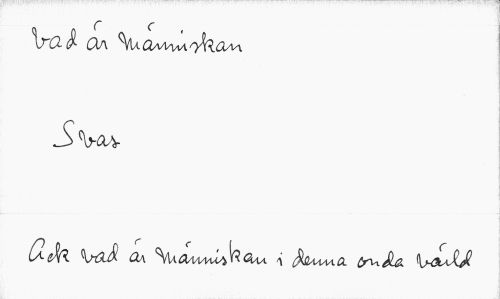 Vad är människan
Svas
Ack vad är människan i denna onda värld